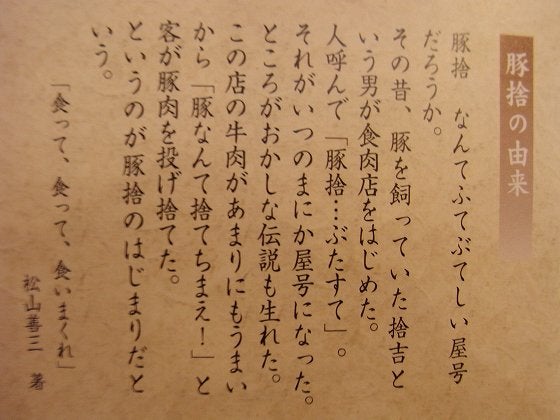 豚捨の由来
豚捨　なんてふてぶてしい屋号
だろうか。
その昔、豚を飼っていた捨吉と
いう男が食肉店をはじめた。
人呼んで「豚捨…ぶたすて」。
それがいつのまにか屋号になった。
ところがおかしな伝説も生れた。
この店の牛肉があまりにもうまい
から「豚なんて捨てちまえ！」と
客が豚肉を投げ捨てた。
というのが豚捨のはじまりだと
いう。
「食って、食って、食いまくれ」
松山善三　著